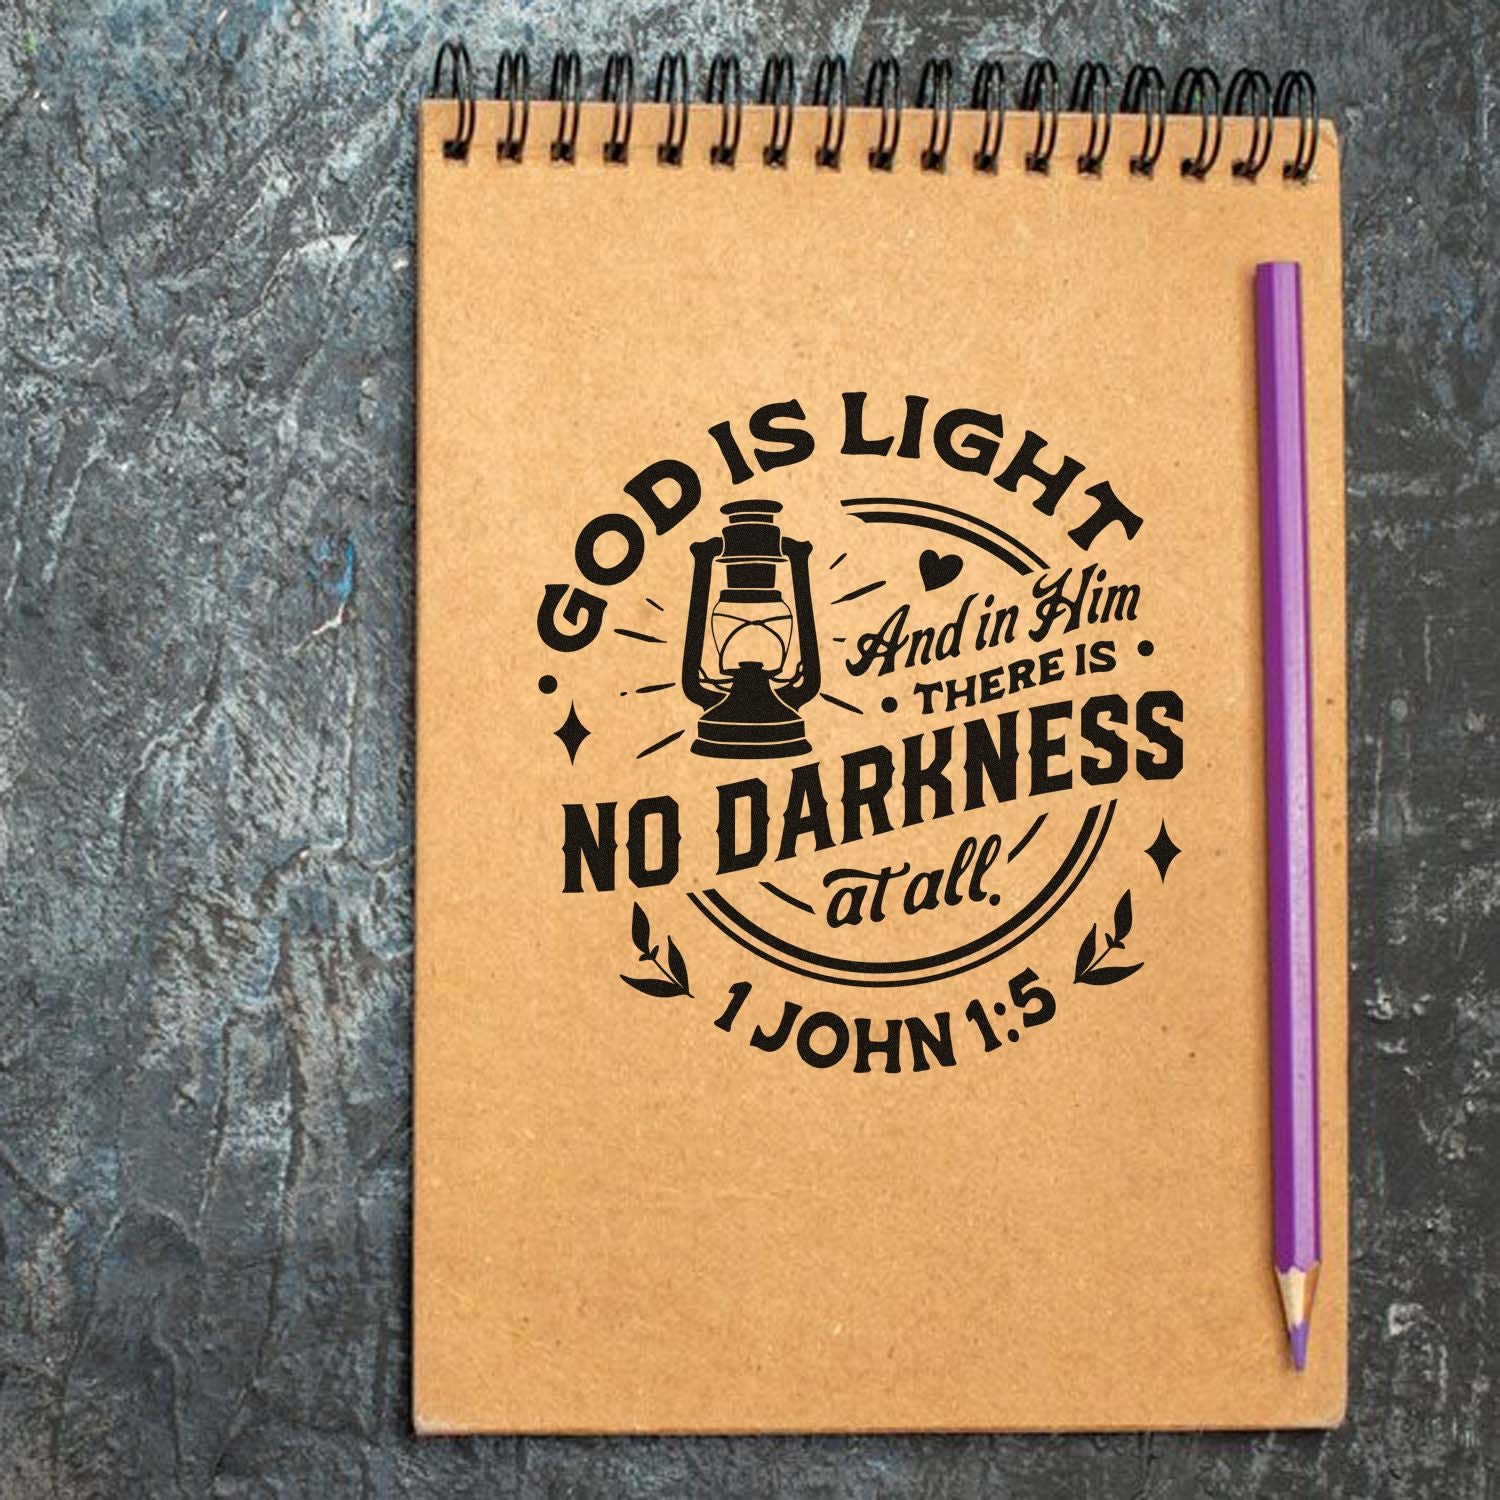 GOD IS LIGHT
And in Him
THERE IS
NO DARKNESS
at all.
1 JOHN 1:5